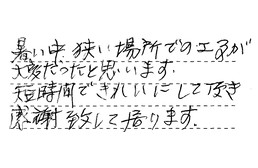 暑い中、狭い場所での工事が
大変だったと思います。
短時間できれいにして頂き
感謝致して居ります。